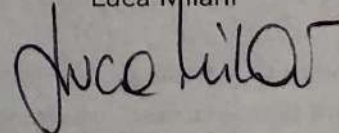 Luca Milani
Luca Milani